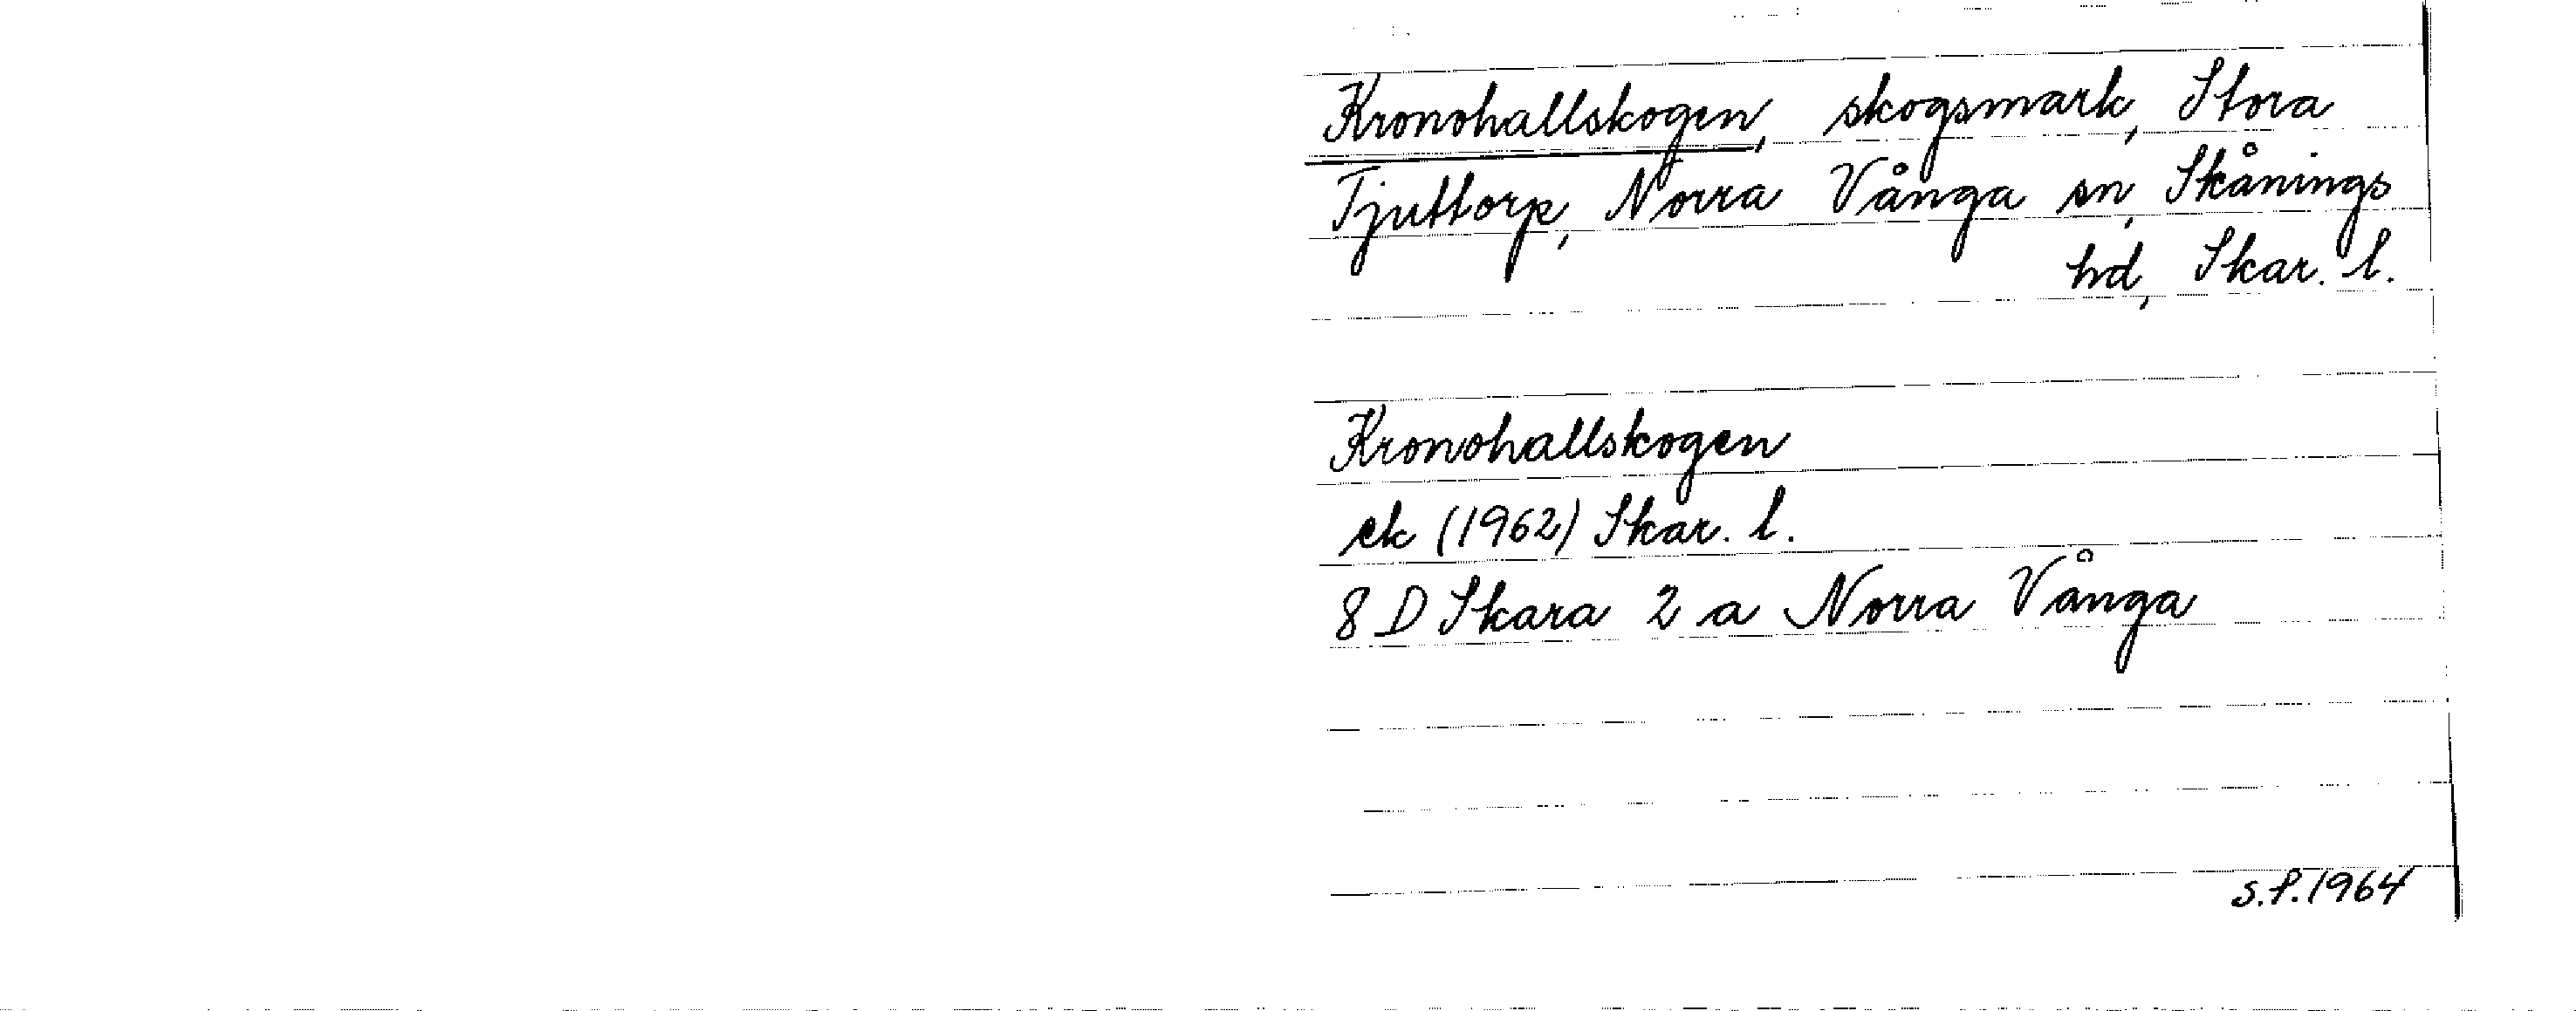 Kronohallskogen, skogsmark, Stora
Tjuttorp, Norra Vånga sn, Skånings
hd, Skar. l.
Kronohallskogen
ek (1962) Skar. l.
8 D Skara 2 a Norra Vånga
s.f. 1964